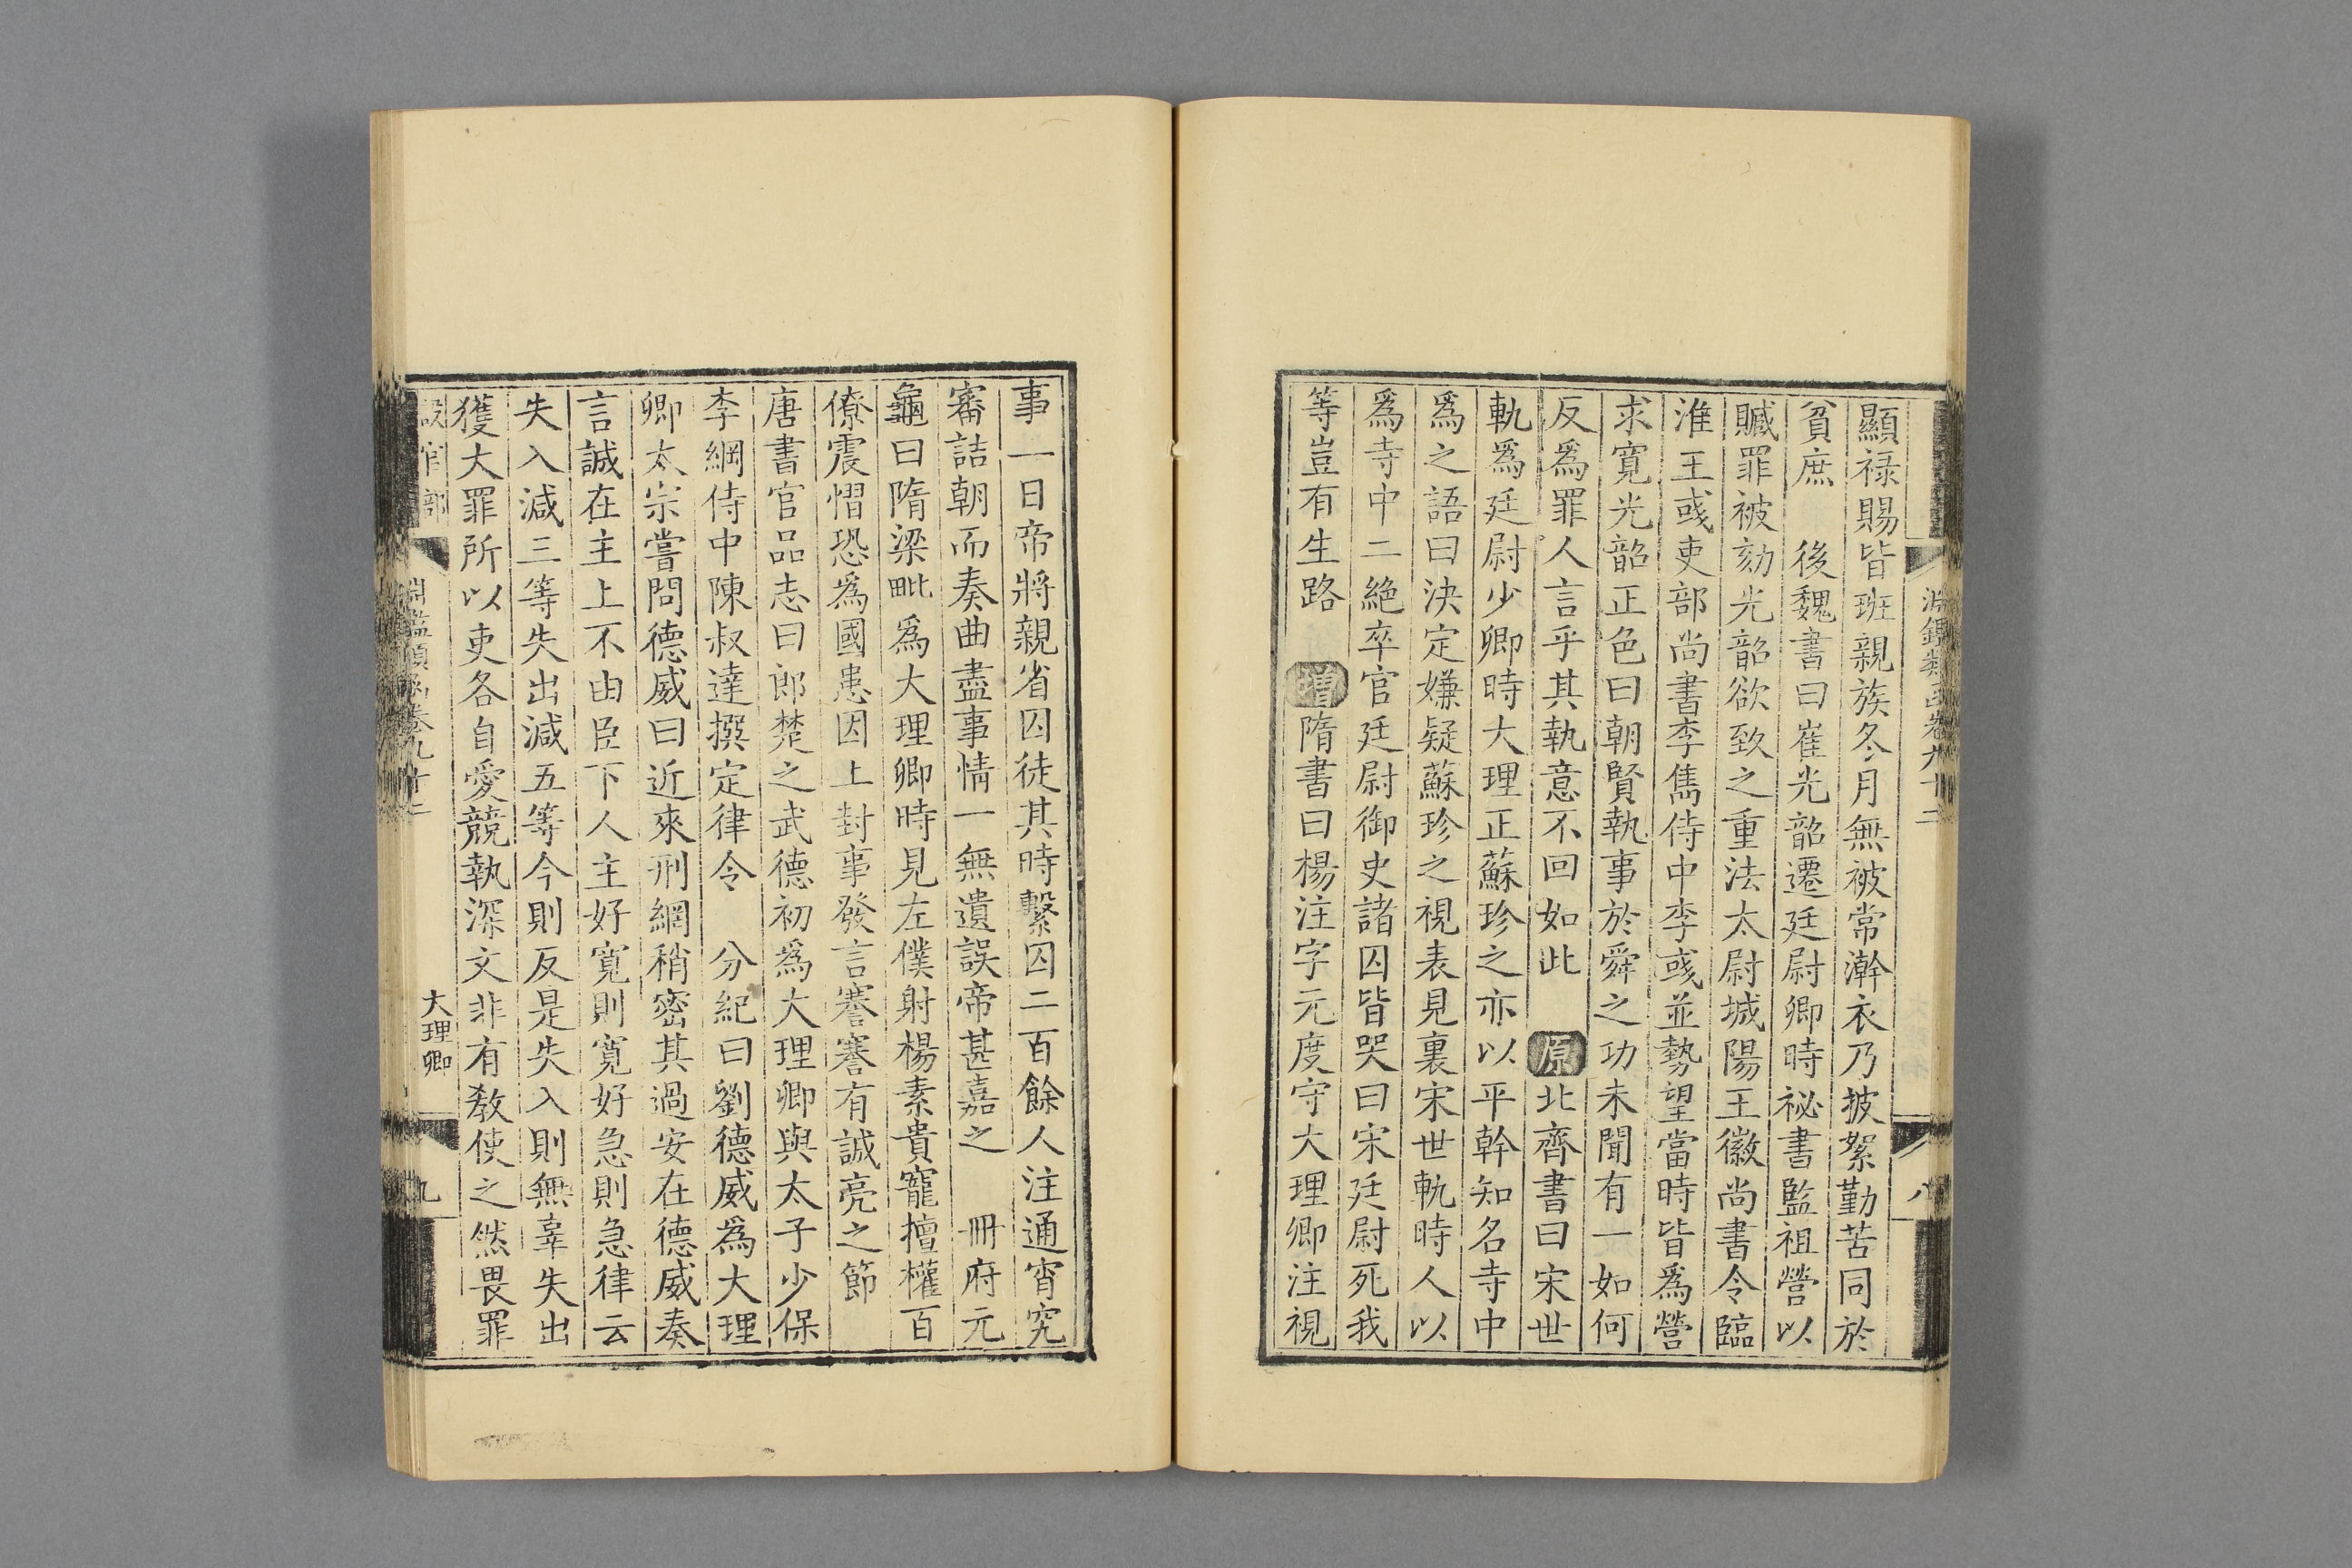 淵鑑類函卷九十三
八
顯祿賜皆班親族冬月無被常澣衣乃披絮勤苦同於
貧庶　後魏書曰崔光韶遷廷尉卿時祕書監祖營以
贓罪被劾光韶欲致之重法太尉城陽王徽尚書令臨
淮王彧吏部尚書李雋侍中李彧並勢望當時皆爲營
求寬光韶正色曰朝賢執事於舜之功未聞有一如何
反爲罪人言乎其執意不回如此　原北齊書曰宋世
軌爲廷尉少卿時大理正蘇珍之亦以平幹知名寺中
爲之語曰決定嫌疑蘇珍之視表見裏宋世軌時人以
爲寺中二絕卒官廷尉御史諸囚皆哭曰宋廷尉死我
等豈有生路　增隋書曰楊注字元度守大理卿注視
事一日帝將親省囚徒其時繫囚二百餘人注通宵究
審詰朝而奏曲盡事情一無遺誤帝甚嘉之　冊府元
龜曰隋梁毗爲大理卿時見左僕射楊素貴寵擅權百
僚震慴恐爲國患因上封事發言謇謇有誠亮之節
唐書官品志曰郎楚之武德初爲大理卿與太子少保
李綱侍中陳叔達撰定律令　分紀曰劉德威爲大理
卿太宗嘗問德威曰近來刑網稍密其過安在德威奏
言誠在主上不由臣下人主好寬則寬好急則急律云
失入減三等失出減五等今則反是失入則無辜失出
獲大罪所以吏各自愛競執深文非有敎使之然畏罪
設官部　淵鑑類函卷九十三　大理卿　九